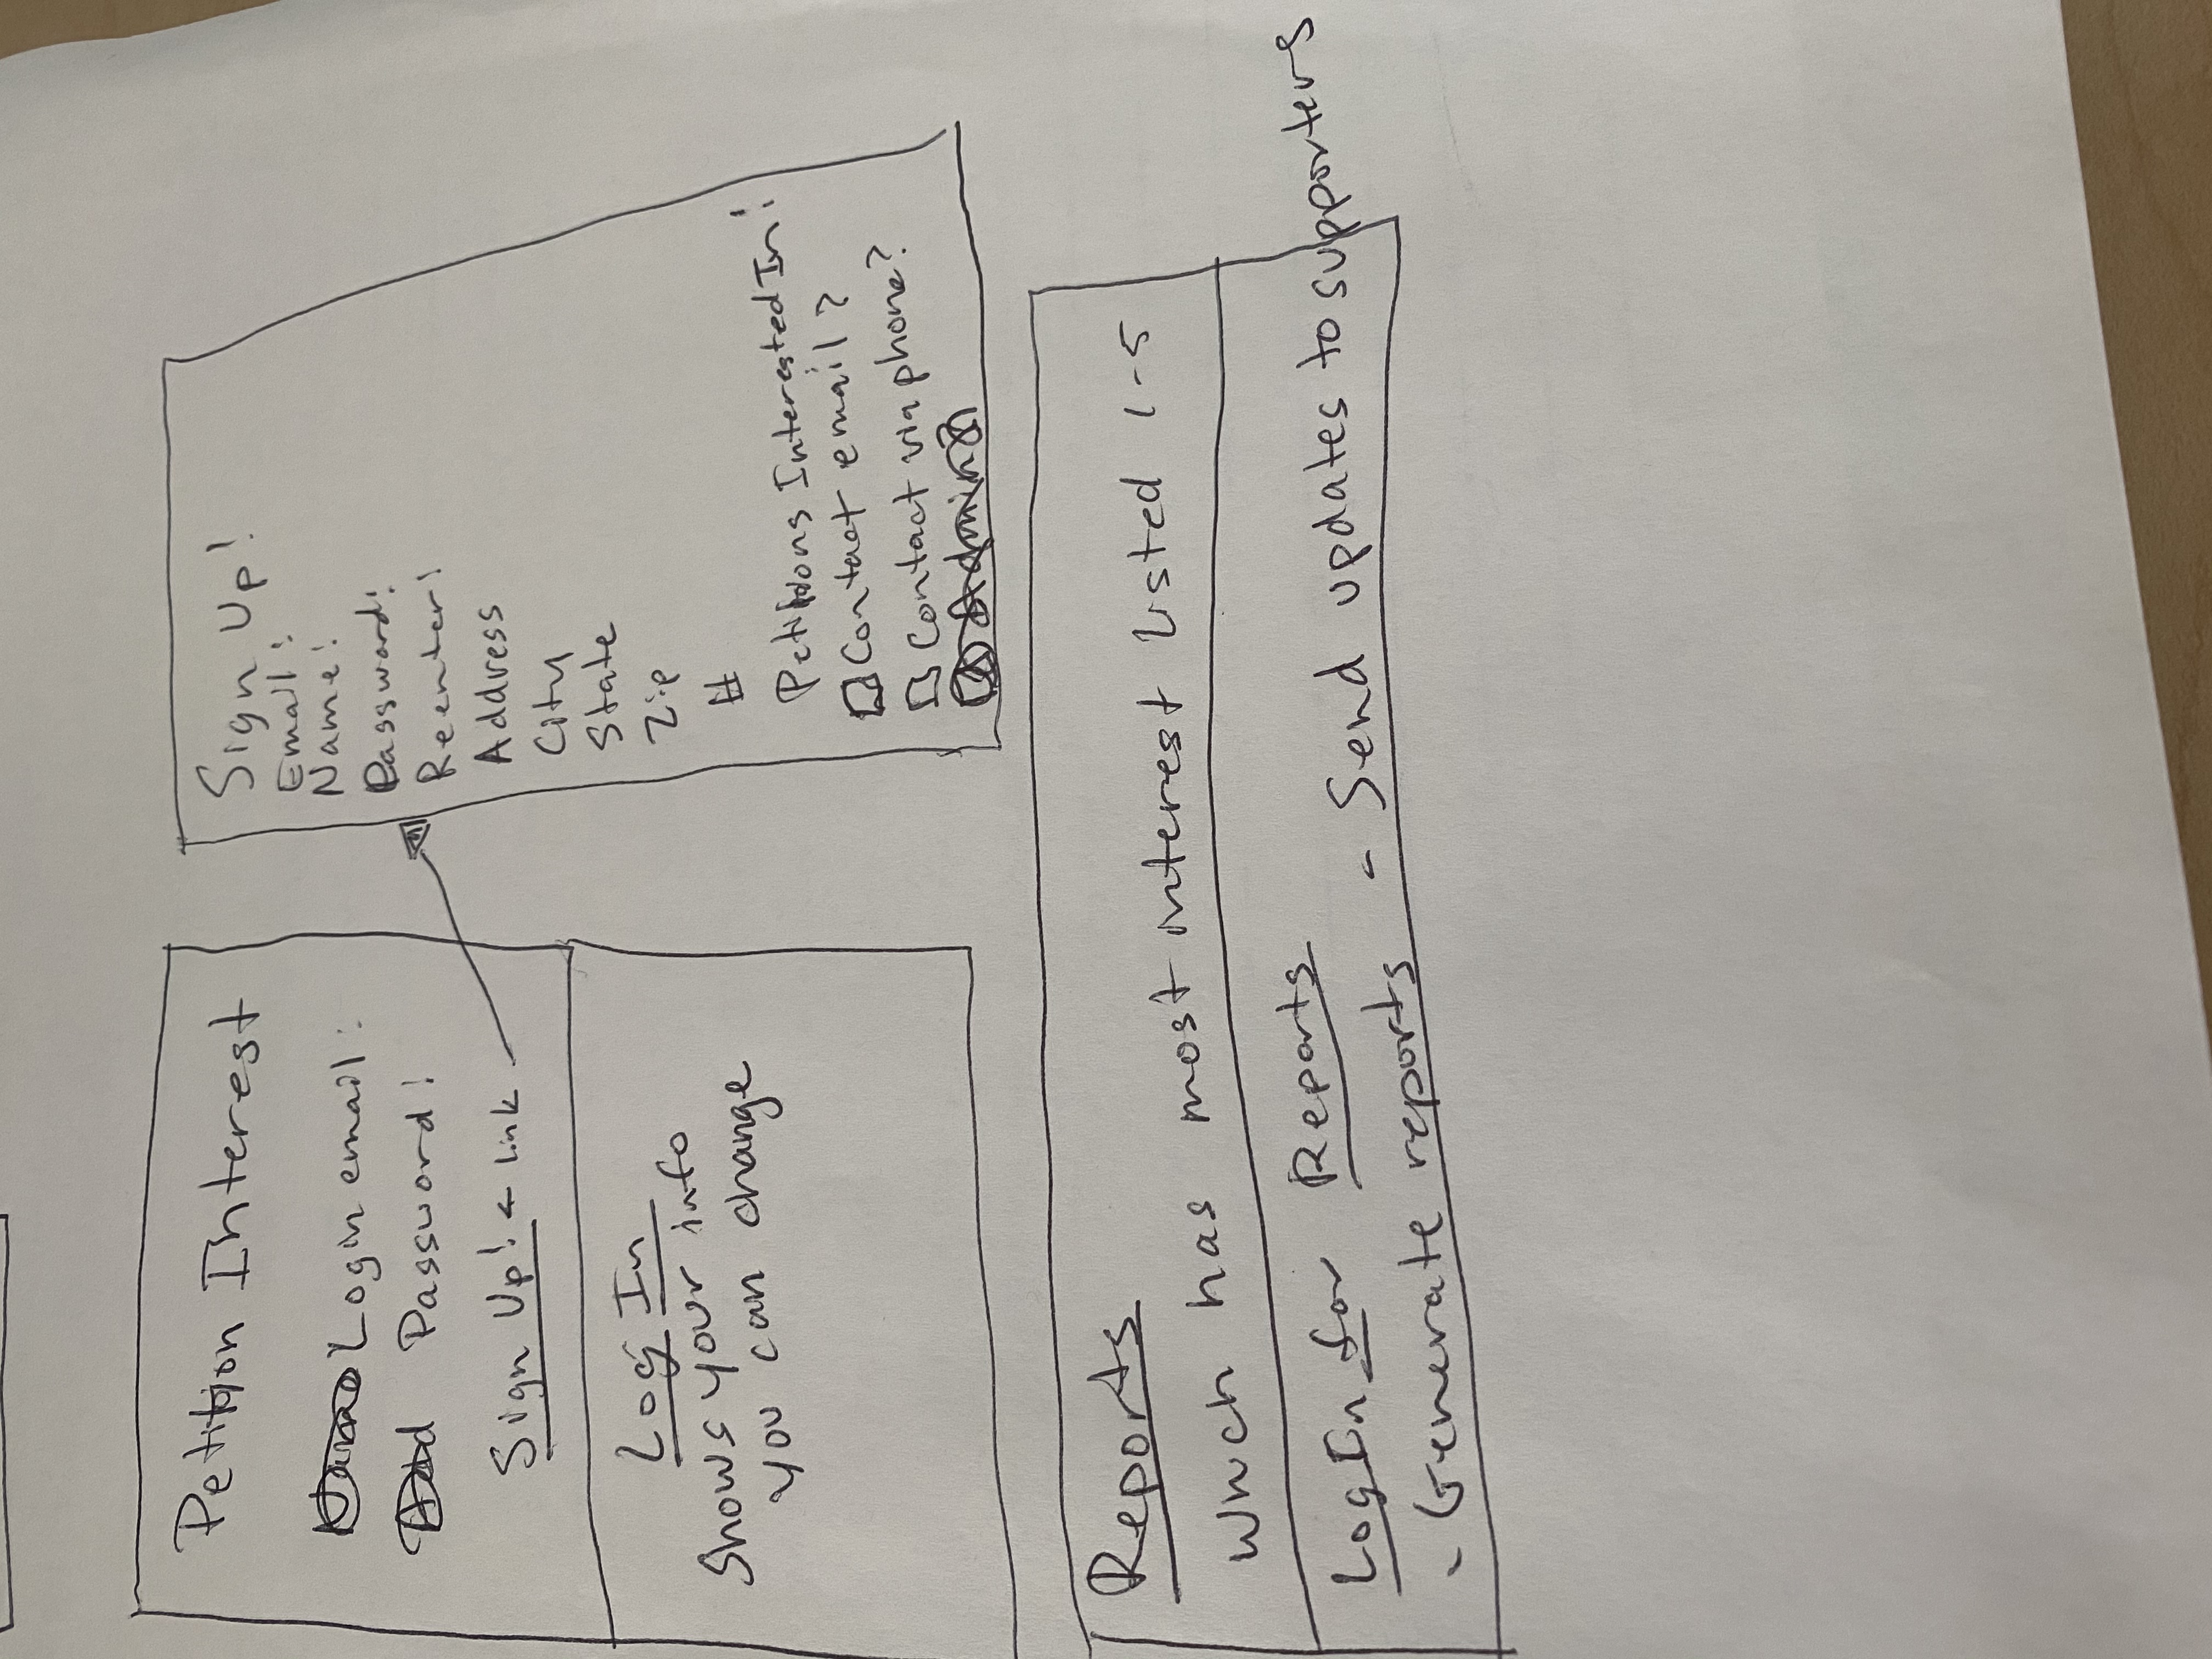 Petition Interest
Login email:
Password:
Sign Up! ← Link
Log In
Shows your info
you can change
Sign Up!
Email:
Name:
Password:
Reenter:
Address
City
State
Zip
#
Petitions Interested In:
Contact email?
Contact via phone?
Reports
Which has most interest listed 1-5
Log In for Reports
- Generate reports - Send updates to supporters